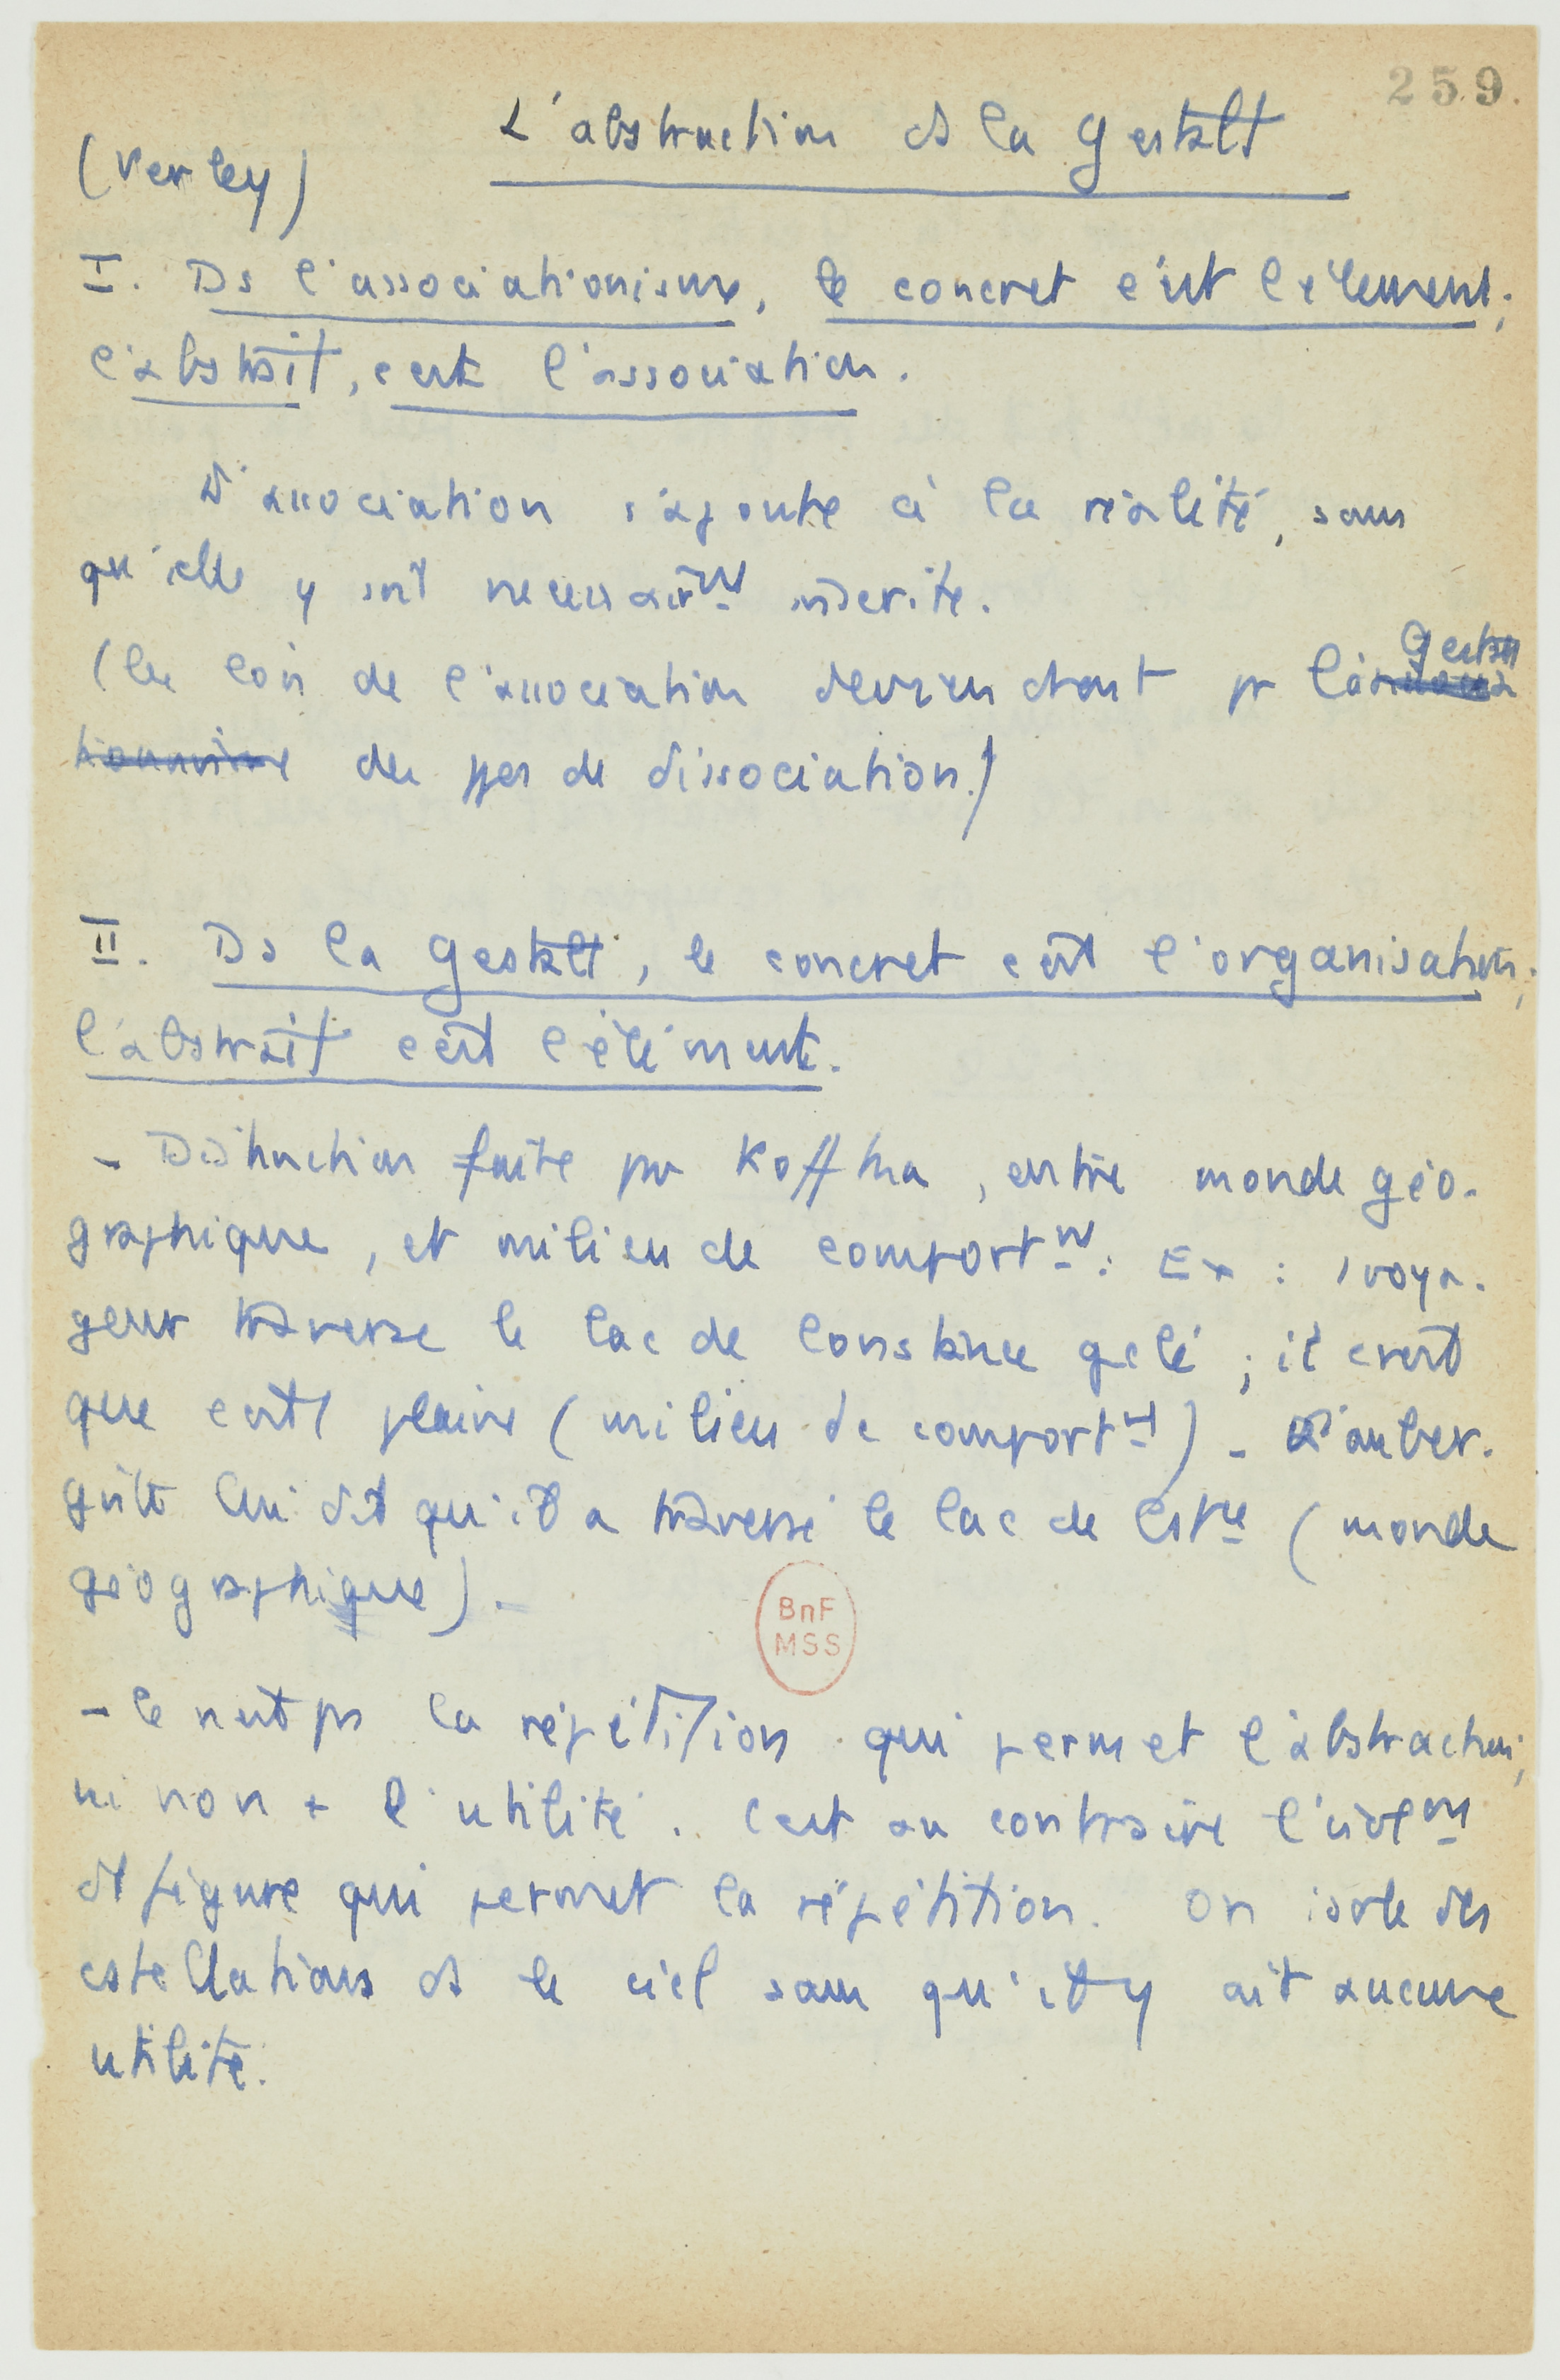 259.
L'abstraction ds la Gestalt
(Verley)
I. Ds l'associationisme, le concret c'est l'élément;
l'abstrait, c'est l'association.
L'association s'ajoute à la réalité, sans
qu'elle y soit nécessairmt inscrite.
Gestalt
(les lois de l'association deviendront pr l'associa
tionnisme des pges de dissociation.)
II. Ds la Gestalt, le concret c'est l'organisation;
l'abstrait c'est l'élément.
- Distinction faite par Koffka, entre monde géo-
graphique, et milieu de comportmt. Ex : 1 voya-
geur traverse le lac de Constance gelé ; il croit
que c'est 1 plaine (milieu de comportmt) - L'auber-
giste lui dit qu'il a traversé le lac de Cstce (monde
géographique).
BnF
MSS
- Ce n'est pas la répétition qui permet l'abstraction;
ni non + l'utilité. C'est au contraire l'isolemt
de figure qui permet la répétition. On isole des
cstellations ds le ciel sans qu'il y ait aucune
utilité.